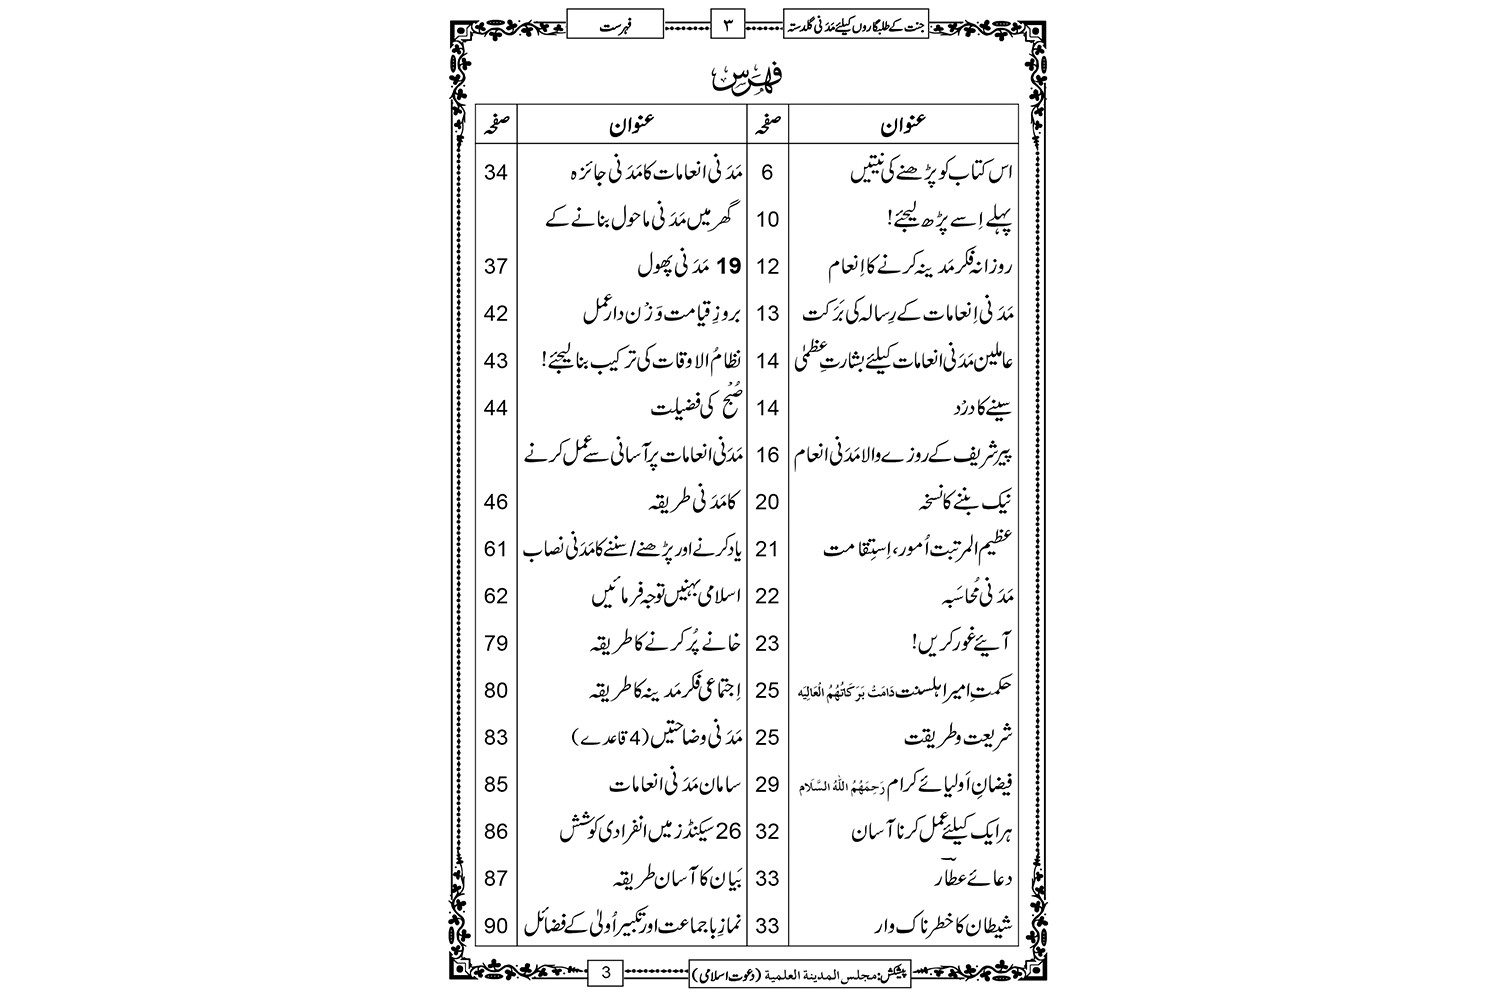 جنت کے طلبگاروں کیلئے مَدَنی گلدستہ
۳
فہرست
فہرس
عنوان صفحہ
اس کتاب کو پڑھنے کی نیتیں 6
پہلے اِسے پڑھ لیجئے! 10
روزانہ فکرِ مَدینہ کرنے کا اِنعام 12
مَدَنی اِنعامات کے رِسالہ کی بَرَکت 13
عاملین مَدَنی انعامات کیلئے بشارتِ عظمیٰ 14
سینے کا دَرْد 14
پیر شریف کے روزے والا مَدَنی انعام 16
نیک بننے کا نسخہ 20
عظیم المرتبت اُمور، اِستِقامت 21
مَدَنی مُحاسَبہ 22
آیئے غور کریں! 23
حکمتِ امیرِ اہلسنت دَامَتْ بَرَکَاتُهُمُ الْعَالِيَه 25
شریعت و طریقت 25
فیضانِ اَولیائے کرام رَحِمَهُمُ اللهُ السَّلَام 29
ہر ایک کیلئے عمل کرنا آسان 32
دعائے عطّار 33
شیطان کا خطرناک وار 33
عنوان صفحہ
مَدَنی انعامات کا مَدَنی جائزہ 34
گھر میں مَدَنی ماحول بنانے کے
19 مَدَنی پھول 37
بروزِ قیامت وَزْن دار عمل 42
نظامُ الاوقات کی ترکیب بنا لیجئے! 43
صُبْح کی فضیلت 44
مَدَنی انعامات پر آسانی سے عمل کرنے
کا مَدَنی طریقہ 46
یاد کرنے اور پڑھنے/سننے کا مَدَنی نصاب 61
اسلامی بہنیں توجہ فرمائیں 62
خانے پُر کرنے کا طریقہ 79
اِجتماعی فکرِ مَدینہ کا طریقہ 80
مَدَنی وضاحتیں (4 قاعدے) 83
سامان مَدَنی انعامات 85
26 سیکنڈز میں انفرادی کوشش 86
بَیان کا آسان طریقہ 87
نمازِ باجماعت اور تکبیرِ اُولیٰ کے فضائل 90
پیشکش: مجلس المدينة العلمية (دعوت اسلامی)
3